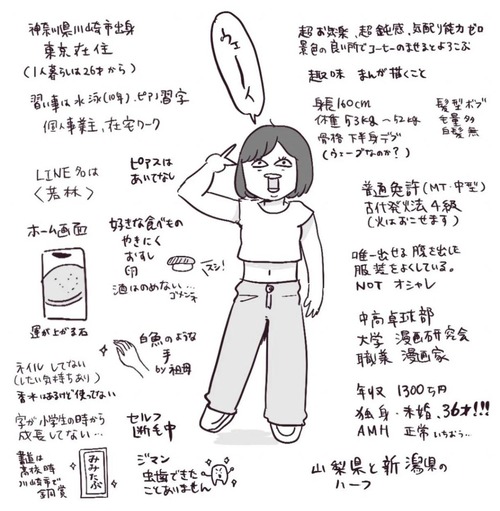 ウェーイ
神奈川県川崎市出身
東京在住
(1人暮らしは26才から)
習い事は水泳(10年)、ピアノ、習字
個人事業主、在宅ワーク
LINE名は
〈若林〉
ピアスは
あいてなし
ホーム画面
運が上がる石
好きな食べもの
やきにく
おすし
卵
スシ!
酒はのめない…
ゴメンネ
白魚のような
手
by祖母
ネイルしてない
(したい気持ちあり)
香水はあるけど使ってない
字が小学生の時から
成長してない…
書道は
高校時
川崎市で
金賞
みみたぶ
セルフ
断毛中
ジマン
虫歯できた
ことありません
超お気楽、超鈍感、気配り能力ゼロ
景色の良い所でコーヒーのませるとよろこぶ
趣味 まんが描くこと
身長160cm
体重53kg〜52kg
骨格下半身デブ
(ウェーブなのか?)
髪型ボブ
毛量多
白髪無
普通免許(MT・中型)
古代発火法4級
(火はおこせます)
唯一出せる腹を出した
服装をよくしている。
NOT オシャレ
中高卓球部
大学 漫画研究会
職業 漫画家
年収 1300万円
独身・未婚、36才!!!
AMH 正常いちおう…
山梨県と新潟県の
ハーフ